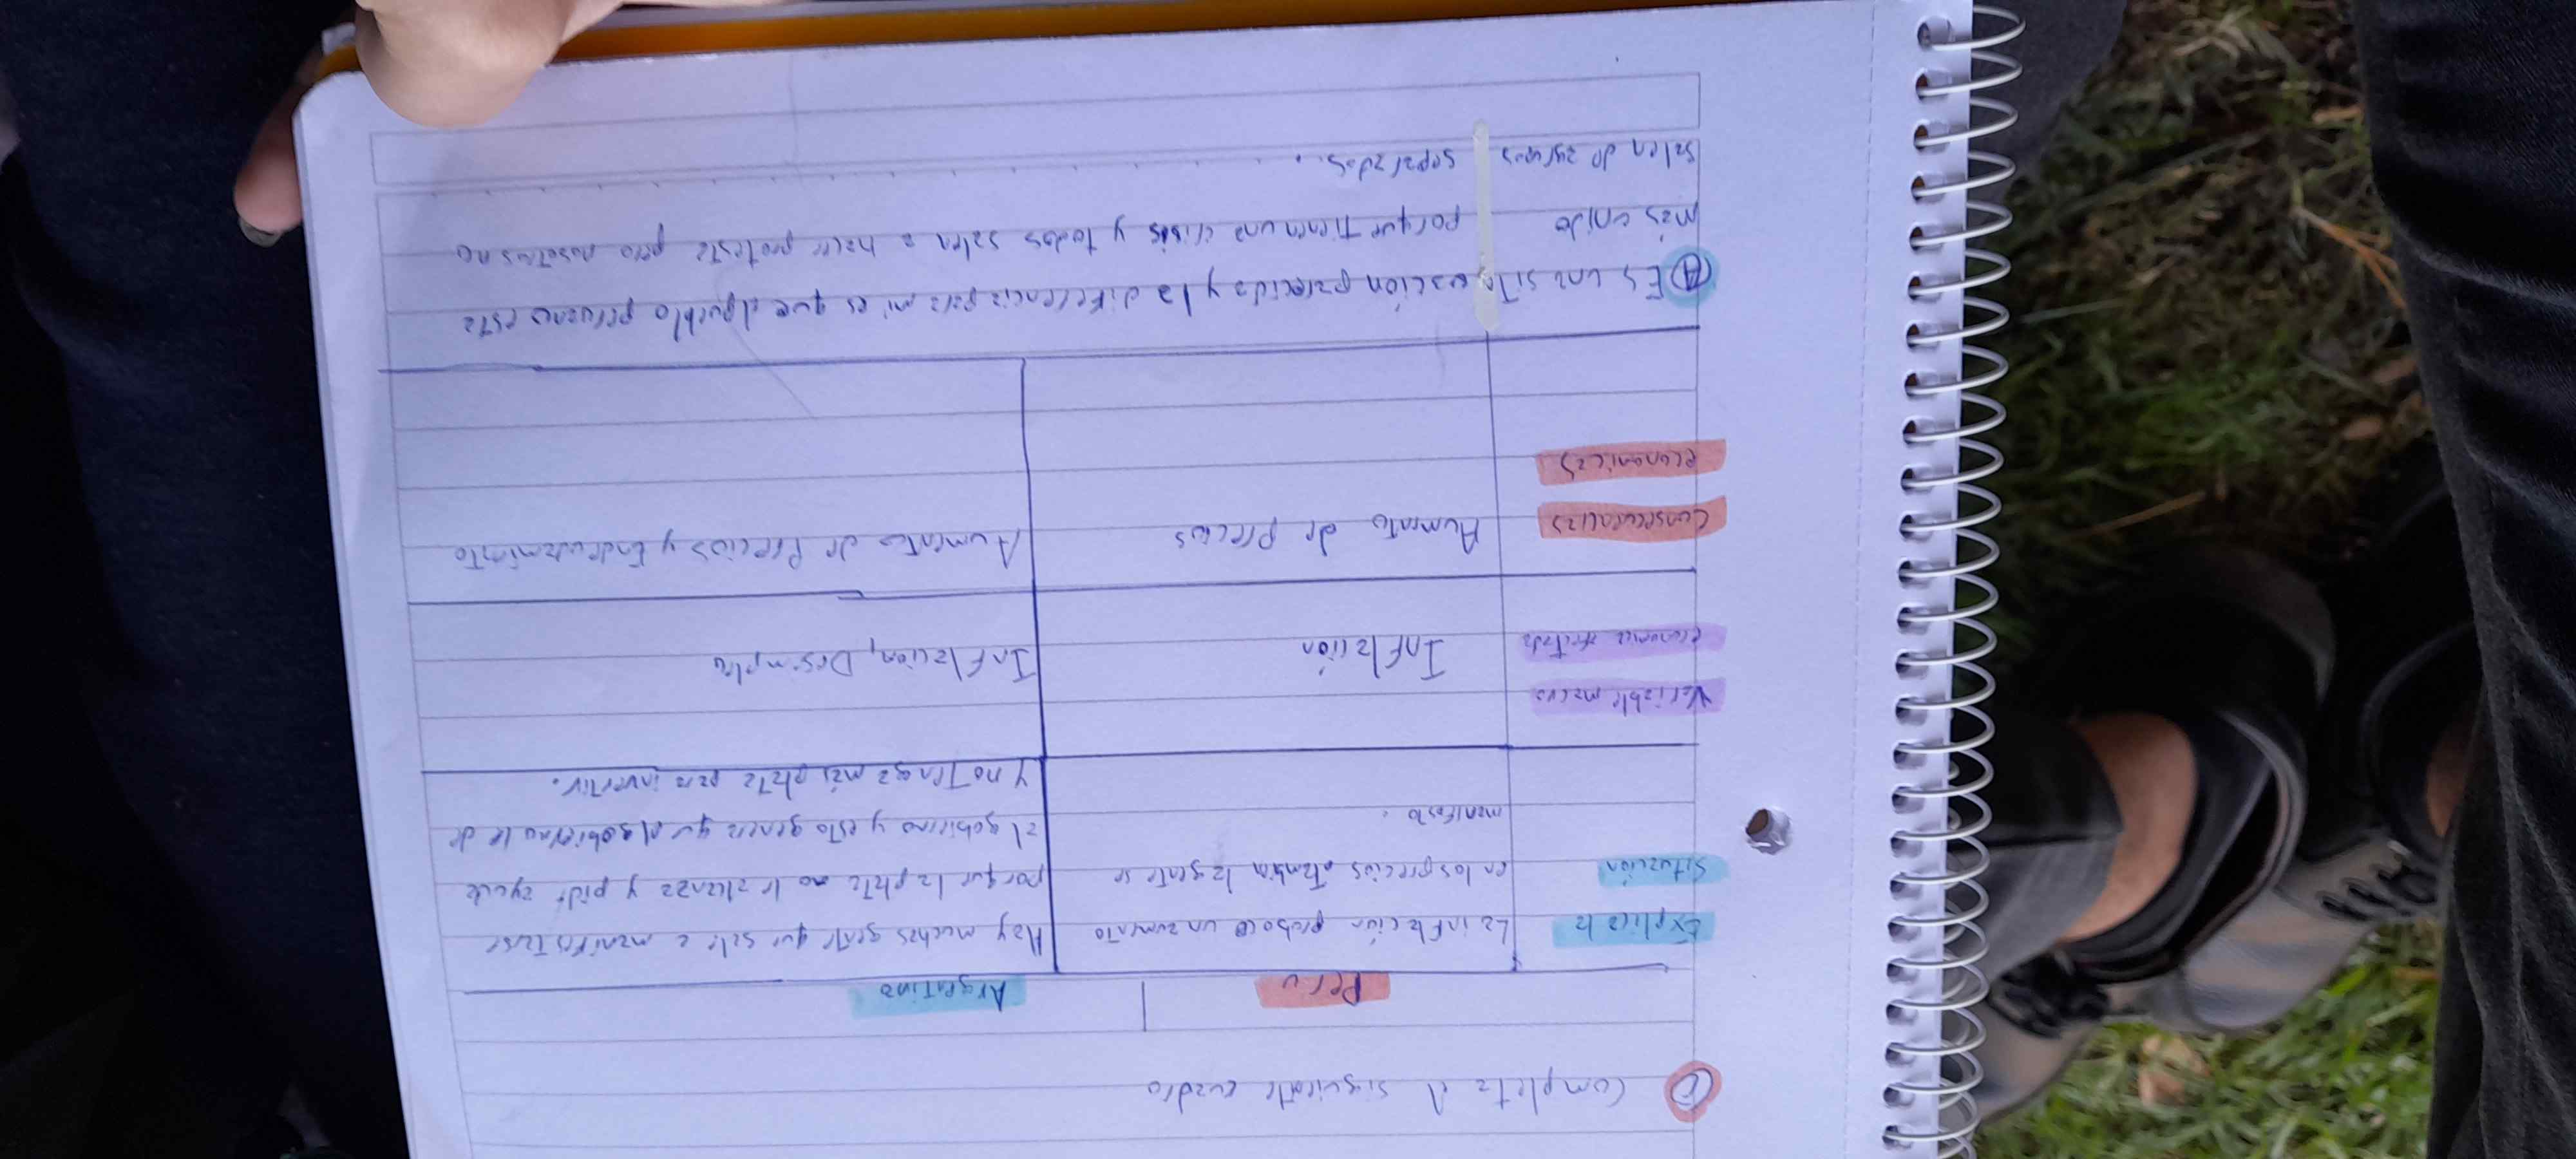 Completa el siguiente cuadro
Peru | Argentina
Explica la | La inflación un aumento | Hay muchas gente que sale a manifestarse
situación | en los precios tambien la gente se | porque la plata no le alcanza y pide ayuda
manifesto. | al gobierno y esto genera que el gobierno le de
y no tenga más plata para invertir.
Variable macro
economica afectada | Inflación | Inflacion, Desempleo
Consecuencias | Aumento de Precios | Aumentos de Precios y Endeudamiento
economicas
A Es una situación parecida y la diferencia para mi es que el pueblo peruano esta
más unido porque tienen una crisis y todos salen a hacer protesta pero nosotros no
salen de agrupos separados.